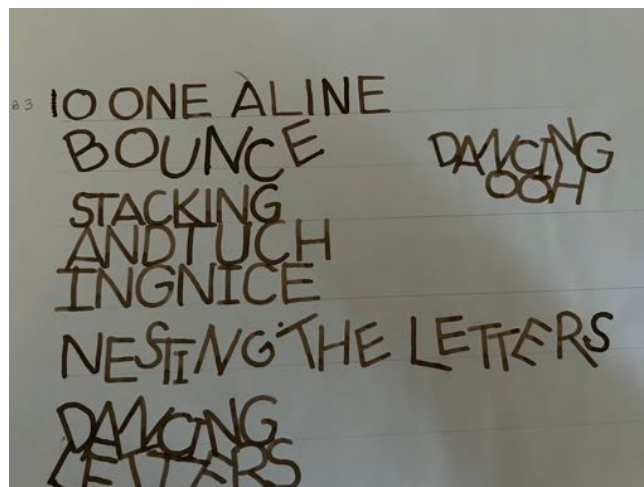 B3
10 ONE ALINE
BOUNCE
DANCING
OOH
STACKING
ANDTUCH
INGNICE
NESTING THE LETTERS
DANCING
LETTERS